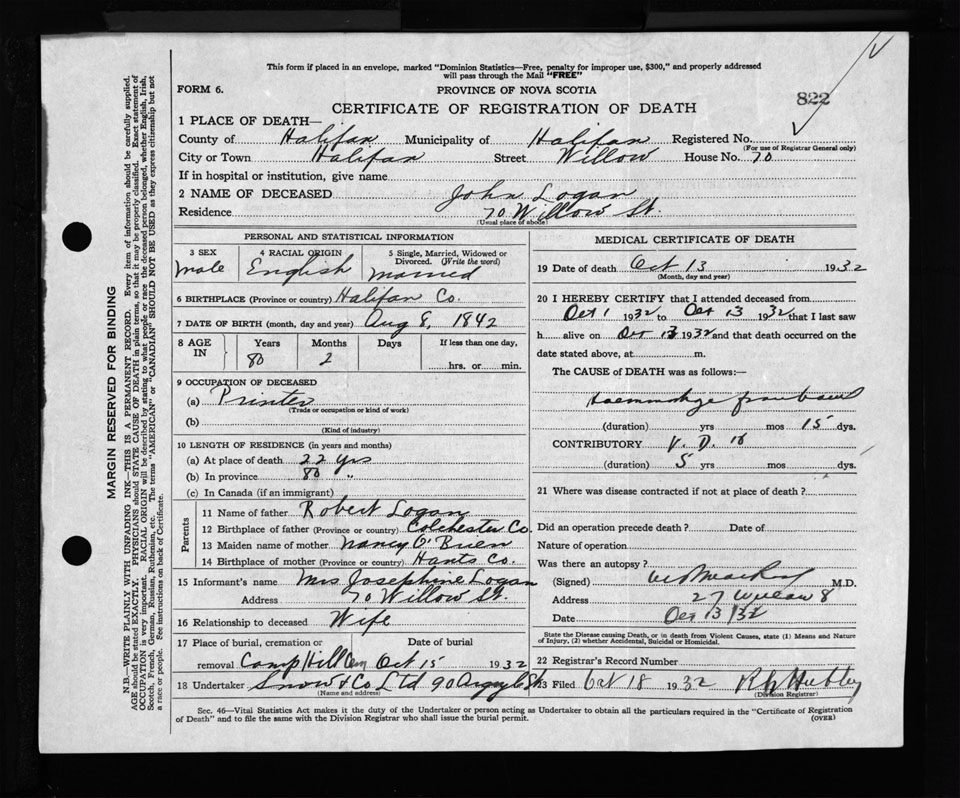 This form if placed in an envelope, marked "Dominion Statistics—Free, penalty for improper use, $300," and properly addressed
will pass through the Mail "FREE"
FORM 6.
PROVINCE OF NOVA SCOTIA
822
CERTIFICATE OF REGISTRATION OF DEATH
1 PLACE OF DEATH—
County of Halifax Municipality of Halifax Registered No.
(For use of Registrar General only)
City or Town Halifax Street Willow House No. 70
If in hospital or institution, give name
2 NAME OF DECEASED John Logan
Residence 70 Willow St.
(Usual place of abode)
PERSONAL AND STATISTICAL INFORMATION
3 SEX
male
4 RACIAL ORIGIN
English
5 Single, Married, Widowed or
Divorced. (Write the word)
married
6 BIRTHPLACE (Province or country) Halifax Co.
7 DATE OF BIRTH (month, day and year) Aug 8, 1842
8 AGE
IN
Years
80
Months
2
Days
If less than one day,
hrs. or min.
9 OCCUPATION OF DECEASED
(a) Printer
(Trade or occupation or kind of work)
(b)
(Kind of industry)
10 LENGTH OF RESIDENCE (in years and months)
(a) At place of death 22 yrs
(b) In province 80 "
(c) In Canada (if an immigrant)
Parents
11 Name of father Robert Logan
12 Birthplace of father (Province or country) Colchester Co.
13 Maiden name of mother Nancy O'Brien
14 Birthplace of mother (Province or country) Hants Co.
15 Informant's name Mrs Josephine Logan
Address 70 Willow St.
16 Relationship to deceased Wife
17 Place of burial, cremation or
removal Camp Hill Cem
Date of burial
Oct 15 1932
18 Undertaker Snow & Co Ltd 90 Argyle St
(Name and address)
MEDICAL CERTIFICATE OF DEATH
19 Date of death Oct 13 1932
(Month, day and year)
20 I HEREBY CERTIFY that I attended deceased from
Oct 1 1932 to Oct 13 1932 that I last saw
h alive on Oct 13 1932 and that death occurred on the
date stated above, at m.
The CAUSE of DEATH was as follows:—
Haemorrhage
(duration) yrs mos 15 dys.
CONTRIBUTORY V. D. H
(duration) 5 yrs mos dys.
21 Where was disease contracted if not at place of death?
Did an operation precede death? Date of
Nature of operation
Was there an autopsy?
(Signed) M.D.
Address 27 Willow St
Date Oct 13/32
State the Disease causing Death, or in death from Violent Causes, state (1) Means and Nature
of Injury, (2) whether Accidental, Suicidal or Homicidal.
22 Registrar's Record Number
23 Filed Oct 18 1932
(Division Registrar)
Sec. 46—Vital Statistics Act makes it the duty of the Undertaker or person acting as Undertaker to obtain all the particulars required in the "Certificate of Registration
of Death" and to file the same with the Division Registrar who shall issue the burial permit.
(OVER)
MARGIN RESERVED FOR BINDING
N.B.—WRITE PLAINLY WITH UNFADING INK—THIS IS A PERMANENT RECORD. Every item of information should be carefully supplied.
AGE should be stated EXACTLY. PHYSICIANS should STATE CAUSE OF DEATH in plain terms, so that it may be properly classified. Exact statement of
OCCUPATION is very important. RACIAL ORIGIN will be described by stating to what people or race the deceased person belonged, whether English, Irish,
Scotch, French, German, Russian, Ruthenian, etc. The terms "AMERICAN" or "CANADIAN" SHOULD NOT BE USED as they express citizenship but not
a race or people. See instructions on back of Certificate.